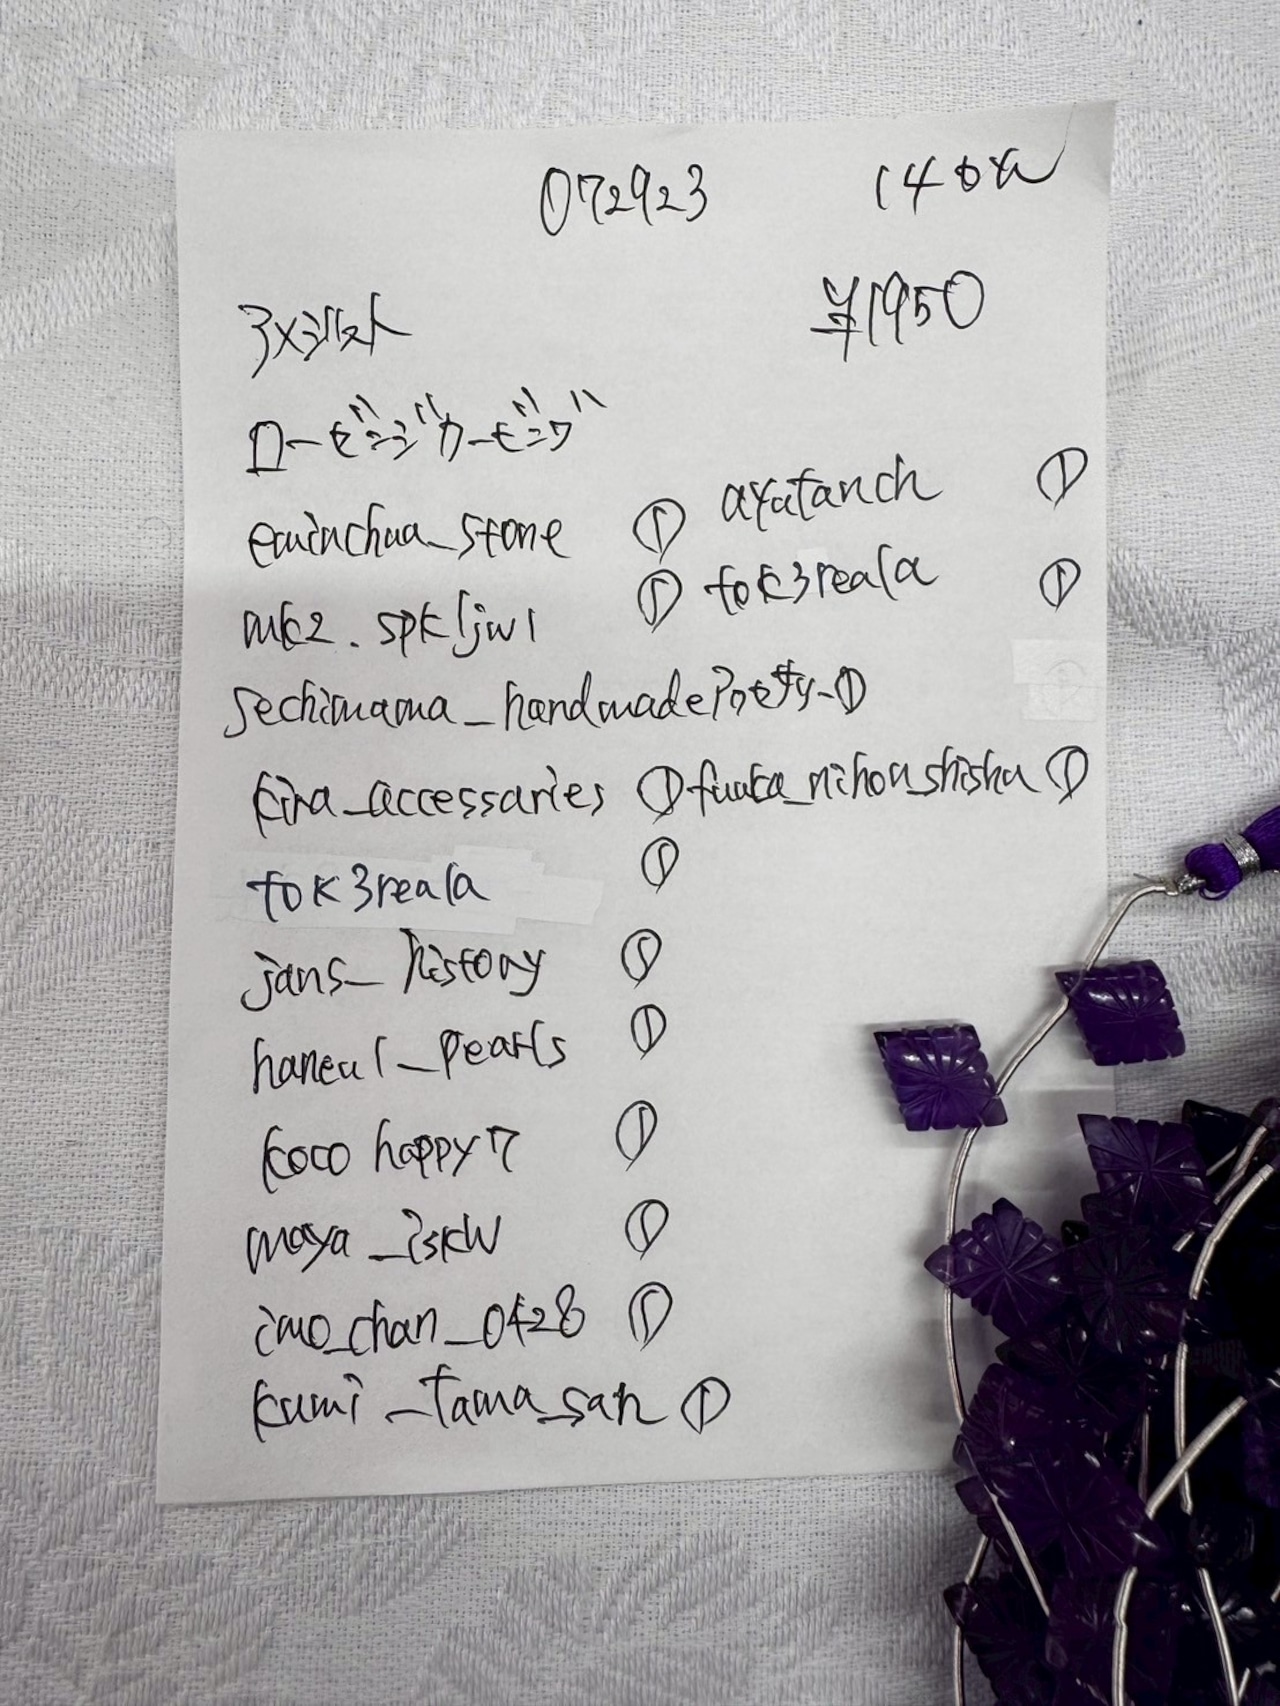 072923
¥1950
アメジスト
ローゼンジカービング
eminchua_stone ① ayatanch ①
mk2.spkljwl ① tok3reala ①
sechimama_handmade ①
kira_accessaries ① fuuka_nihou_shisha ①
tok3reala ①
jans_history ①
haneul_pearls ①
Koco happy7 ①
maya_iskw ①
imo_chan_0428 ①
kumi_tama_san ①